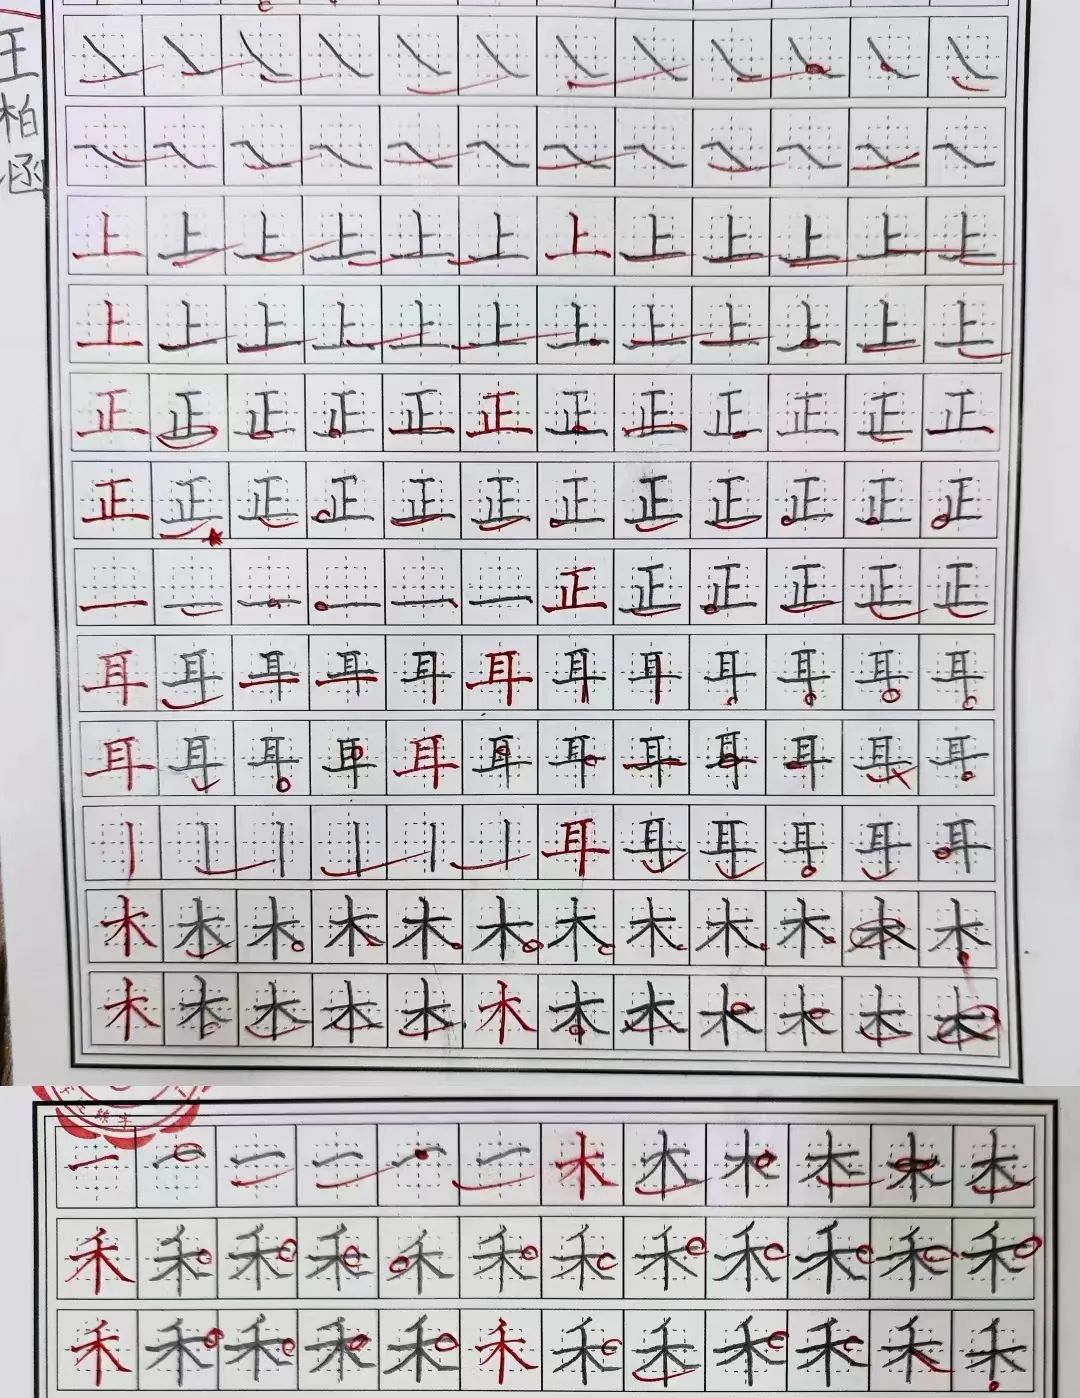 王柏函
上上上上上上上上上上上上
上上上上上上上上上上上上
正正正正正正正正正正正正
正正正正正正正正正正正正
一一一一一一正正正正正正
耳耳耳耳耳耳耳耳耳耳耳耳
耳耳耳耳耳耳耳耳耳耳耳耳
丨丨丨丨丨丨耳耳耳耳耳耳
木木木木木木木木木木木木
木木木木木木木木木木木木
一一一一一一木木木木木木
禾禾禾禾禾禾禾禾禾禾禾禾
禾禾禾禾禾禾禾禾禾禾禾禾